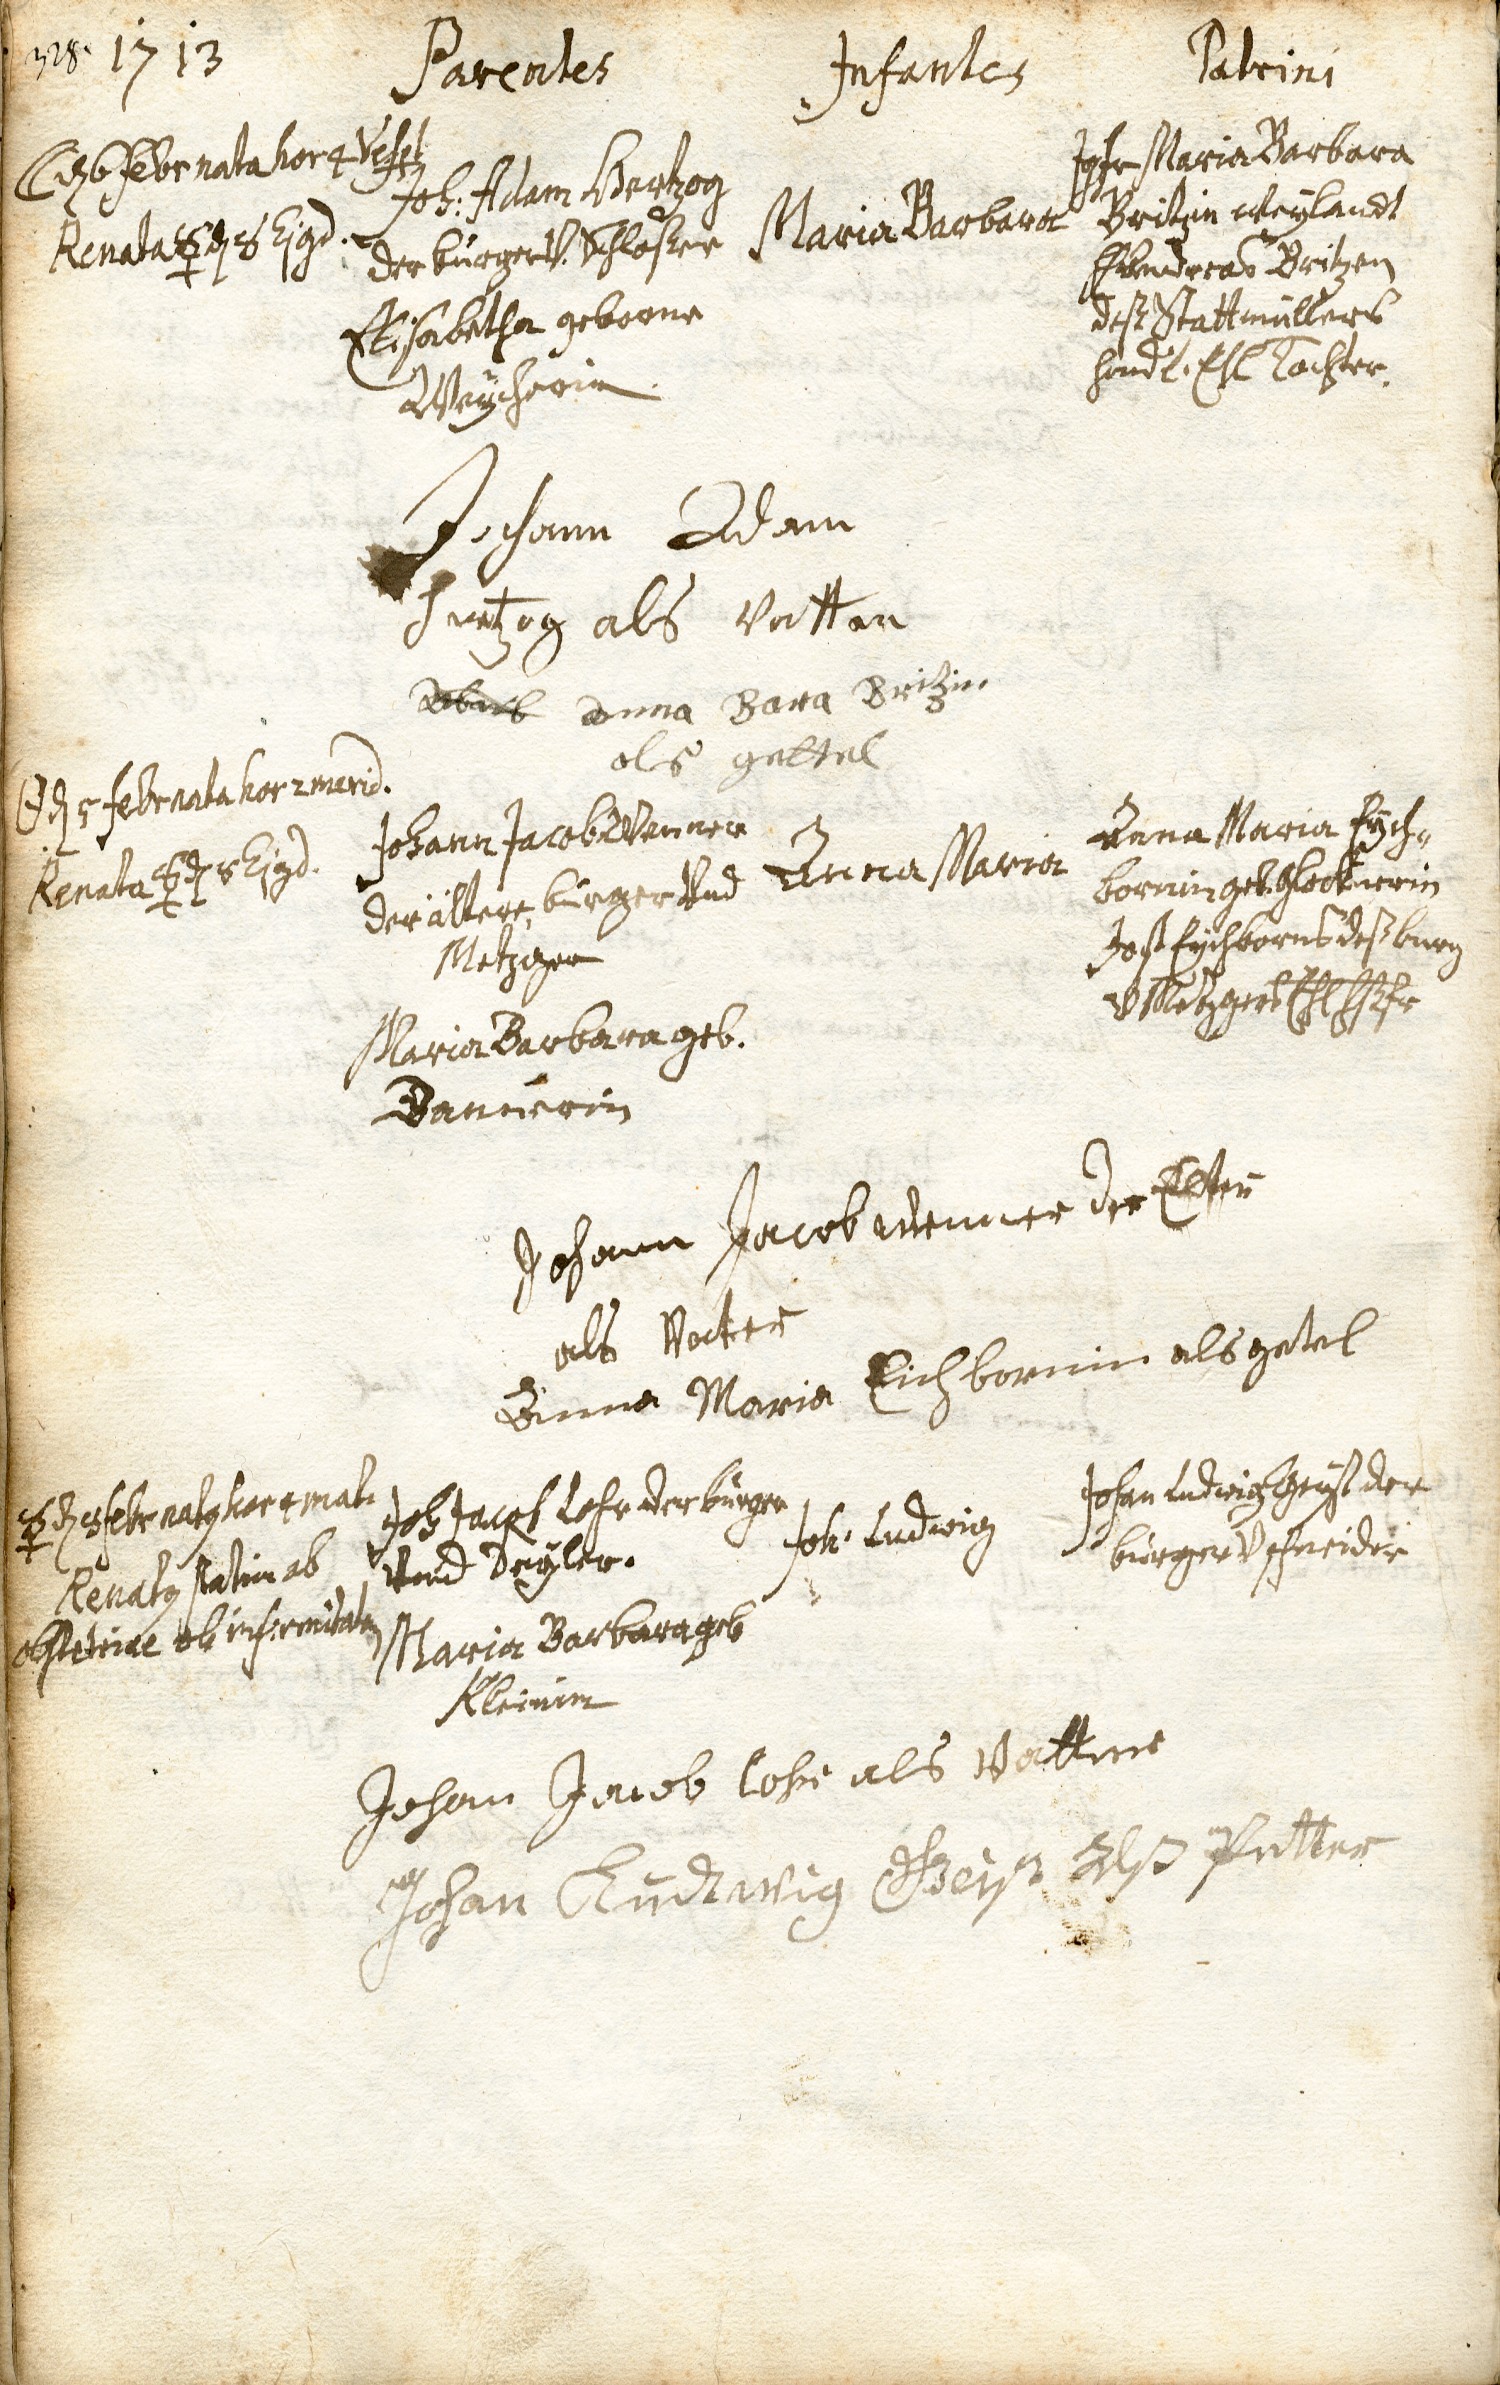 328. 1713 Parentes Infantes Patrini
☾ d. 6 febr nata hor 4 Vesp.
Renata ♀ d. Ejgd.
Joh: Adam Hertzog
der burger V. Schloßer
Elisabetha geborne
Weycherin
Maria Barbara
Jgfr Maria Barbara
Britzin weylandt
Andreas Britzen
deß Stattmüllers
Ehl Tochter.
Johann Adam
Hertzog als Vatter
anna Bara Britzin
als gettel
d. 5 febr nata hor 2 merid.
Renata ♀ d. Ejgd.
Johann Jacob Wenner
der ältere, burger Und
Metzger
Maria Barbara geb.
Bannerin
Anna Maria
Anna Maria Eych-
bornin geb. Glocknerin
Jost Eychborns deß burg
V Metzgers Ehl
Johann Jacob Wenner Der Elter
als Vater
Anna Maria Eichbornin als getel
♀ d. 3 febr natq hor 4 mat
Renatq statim ab
obstetrice ob infirmitatem
Joh Jacob Lohr der burger
Vnd
Maria Barbara geb
Kleinin
Joh. Ludwig
Johan Ludwig Geyß der
burger V schneider
Johan Jacob Lohr als Vatter
Johan Ludwig Geiß Alß Petter